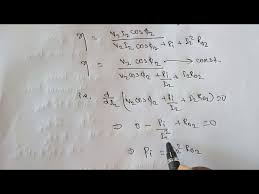 η = V₂ I₂ cosϕ₂ / V₂ I₂ cosϕ₂ + Pi + I₂² R₀₂
η = V₂ cosϕ₂ / V₂ cosϕ₂ + Pi/I₂ + I₂ R₀₂ → const.
i.e. d/dI₂ (V₂ cosϕ₂ + Pi/I₂ + I₂ R₀₂) = 0
⇒ 0 − Pi/I₂² + R₀₂ = 0
⇒ Pi = I₂² R₀₂